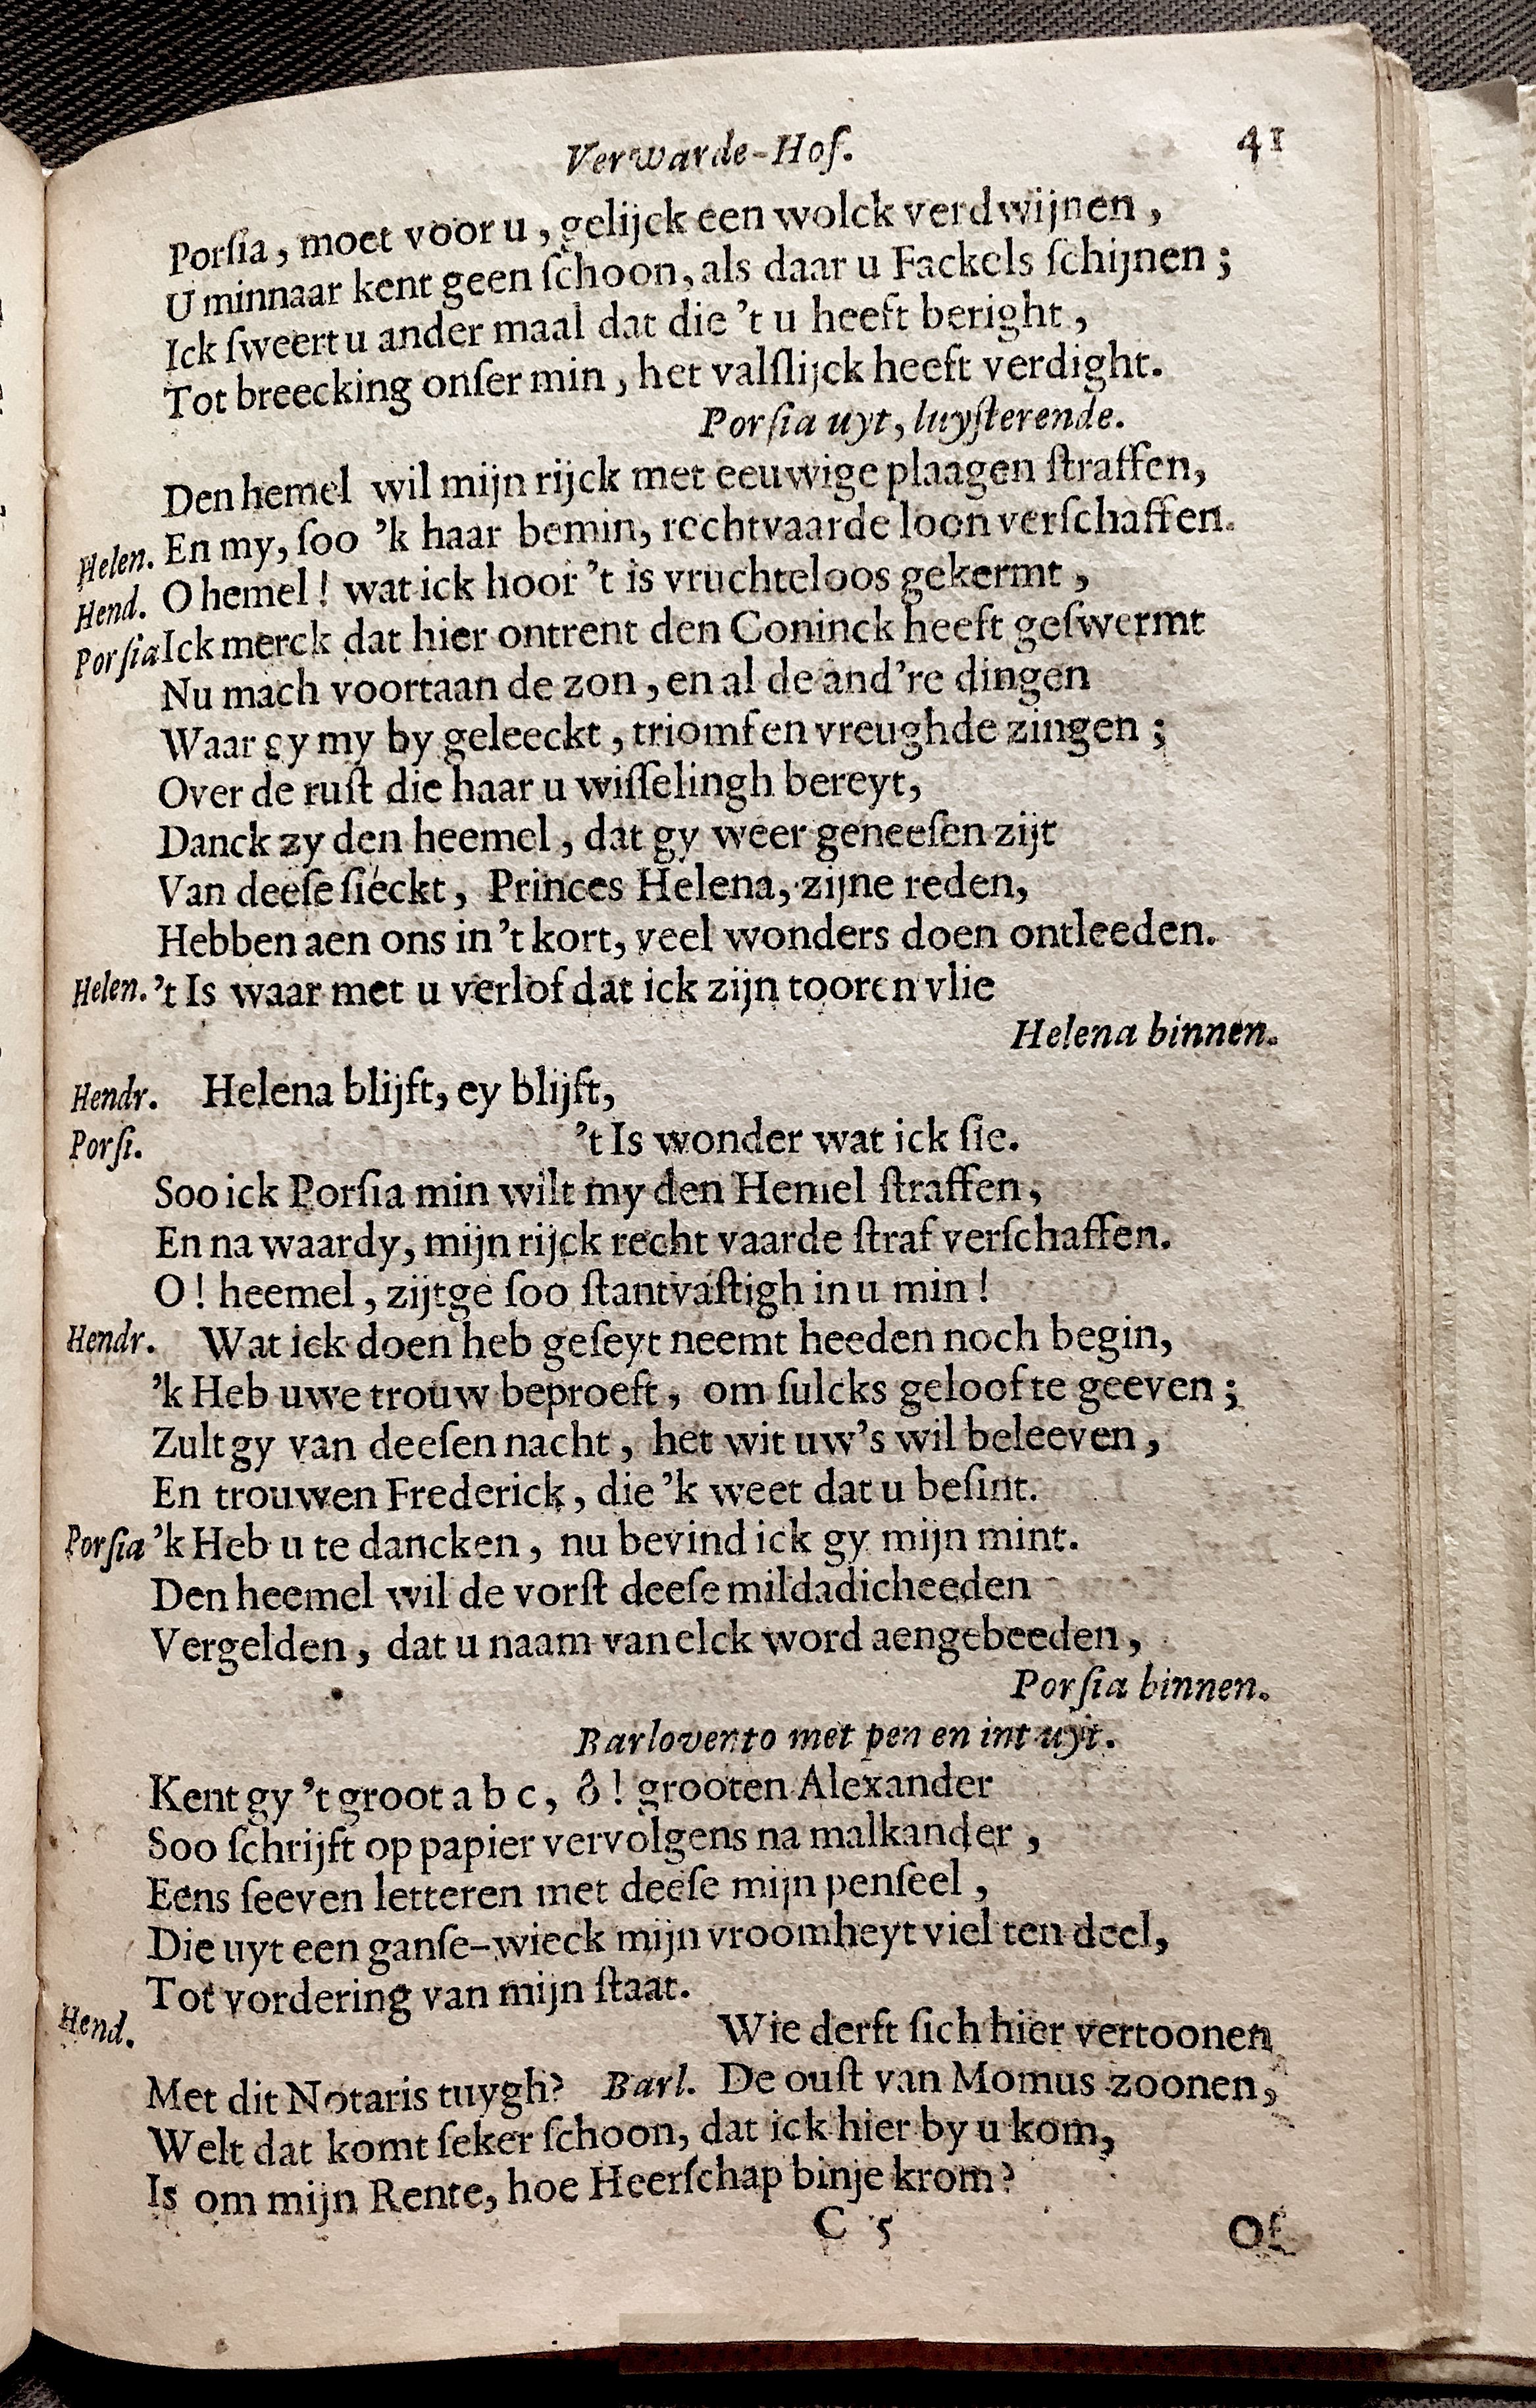 Verwarde-Hof. 41
Porſia, moet voor u, gelijck een wolck verdwijnen,
U minnaar kent geen ſchoon, als daar u Fackels ſchijnen;
Ick ſweert u ander maal dat die 't u heeft beright,
Tot breecking onſer min, het valſlijck heeft verdight.
Porſia uyt, luyſterende.
Den hemel wil mijn rijck met eeuwige plaagen ſtraffen,
En my, ſoo 'k haar bemin, rechtvaarde loon verſchaffen.
Helen. O hemel! wat ick hoor 't is vruchteloos gekermt,
Hend. Ick merck dat hier ontrent den Coninck heeft geſwermt
Porſia Nu mach voortaan de zon, en al de and're dingen
Waar gy my by geleeckt, triomf en vreughde zingen;
Over de ruſt die haar u wiſſelingh bereyt,
Danck zy den heemel, dat gy weer geneeſen zijt
Van deeſe ſieckt, Princes Helena, zijne reden,
Hebben aen ons in 't kort, veel wonders doen ontleeden.
Helen. 't Is waar met u verlof dat ick zijn tooren vlie
Helena binnen.
Hendr. Helena blijft, ey blijft,
Porſi. 't Is wonder wat ick ſie.
Soo ick Porſia min wilt my den Hemel ſtraffen,
En na waardy, mijn rijck recht vaarde ſtraf verſchaffen.
O! heemel, zijtge ſoo ſtantvaſtigh in u min!
Hendr. Wat ick doen heb geſeyt neemt heeden noch begin,
'k Heb uwe trouw beproeft, om ſulcks geloof te geeven;
Zult gy van deeſen nacht, het wit uw's wil beleeven,
En trouwen Frederick, die 'k weet dat u beſint.
Porſia 'k Heb u te dancken, nu bevind ick gy mijn mint.
Den heemel wil de vorſt deeſe mildadicheeden
Vergelden, dat u naam van elck word aengebeeden,
Porſia binnen.
Barlovento met pen en int uyt.
Kent gy 't groot a b c, ô! grooten Alexander
Soo ſchrijft op papier vervolgens na malkander,
Eens ſeeven letteren met deeſe mijn penſeel,
Die uyt een ganſe-wieck mijn vroomheyt viel ten deel,
Tot vordering van mijn ſtaat.
Hend. Wie derft ſich hier vertoonen
Met dit Notaris tuygh? Barl. De ouſt van Momus zoonen,
Welt dat komt ſeker ſchoon, dat ick hier by u kom,
Is om mijn Rente, hoe Heerſchap binje krom?
C 5 Of